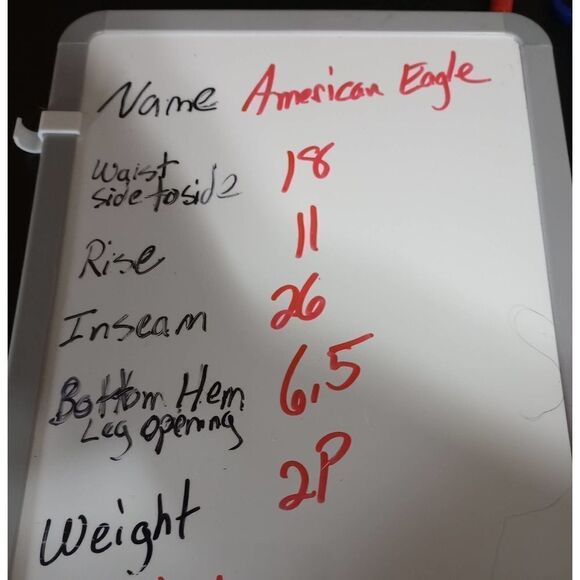 Name American Eagle
Waist
side to side 18
Rise 11
Inseam 26
Bottom Hem 6,5
Leg opening
Weight 2P